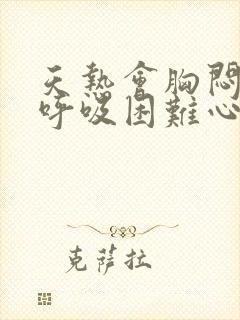 天熱會胸悶
呼吸困難心
克薩拉